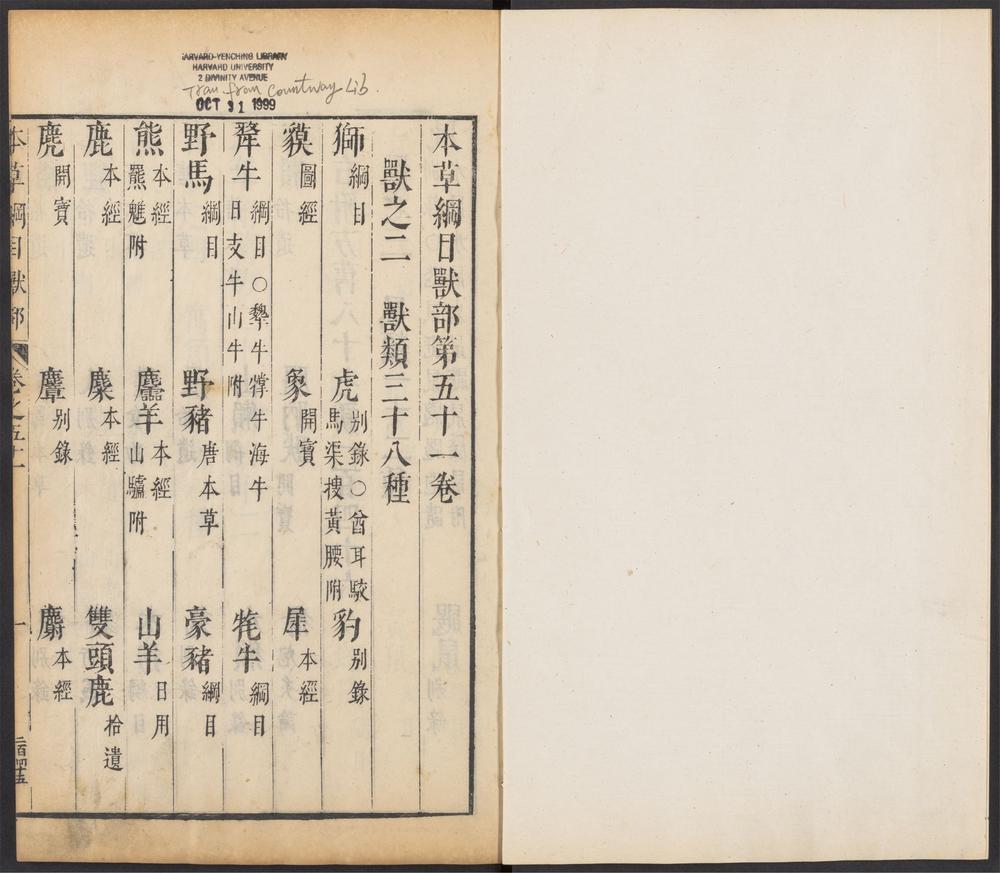 HARVARD-YENCHING LIBRARY
HARVARD UNIVERSITY
2 DIVINITY AVENUE
Tran. from Countway Lib.
OCT 31 1999
本草綱目獸部第五十一卷
獸之二 獸類三十八種
獅 綱目 虎 别錄○酋耳駮馬渠搜黃腰附 豹 别錄
貘 圖經 象 開寶 犀 本經
犛牛 綱目○犩牛㹈牛海牛月支牛山牛附 牦牛 綱目
野馬 綱目 野豬 唐本草 豪豬 綱目
熊 本經羆魋附 麢羊 本經山驢附 山羊 日用
鹿 本經 麋 本經 雙頭鹿 拾遺
麂 開寶 麞 别錄 麝 本經
本草綱目獸部 卷之五十一 一 二百四十五